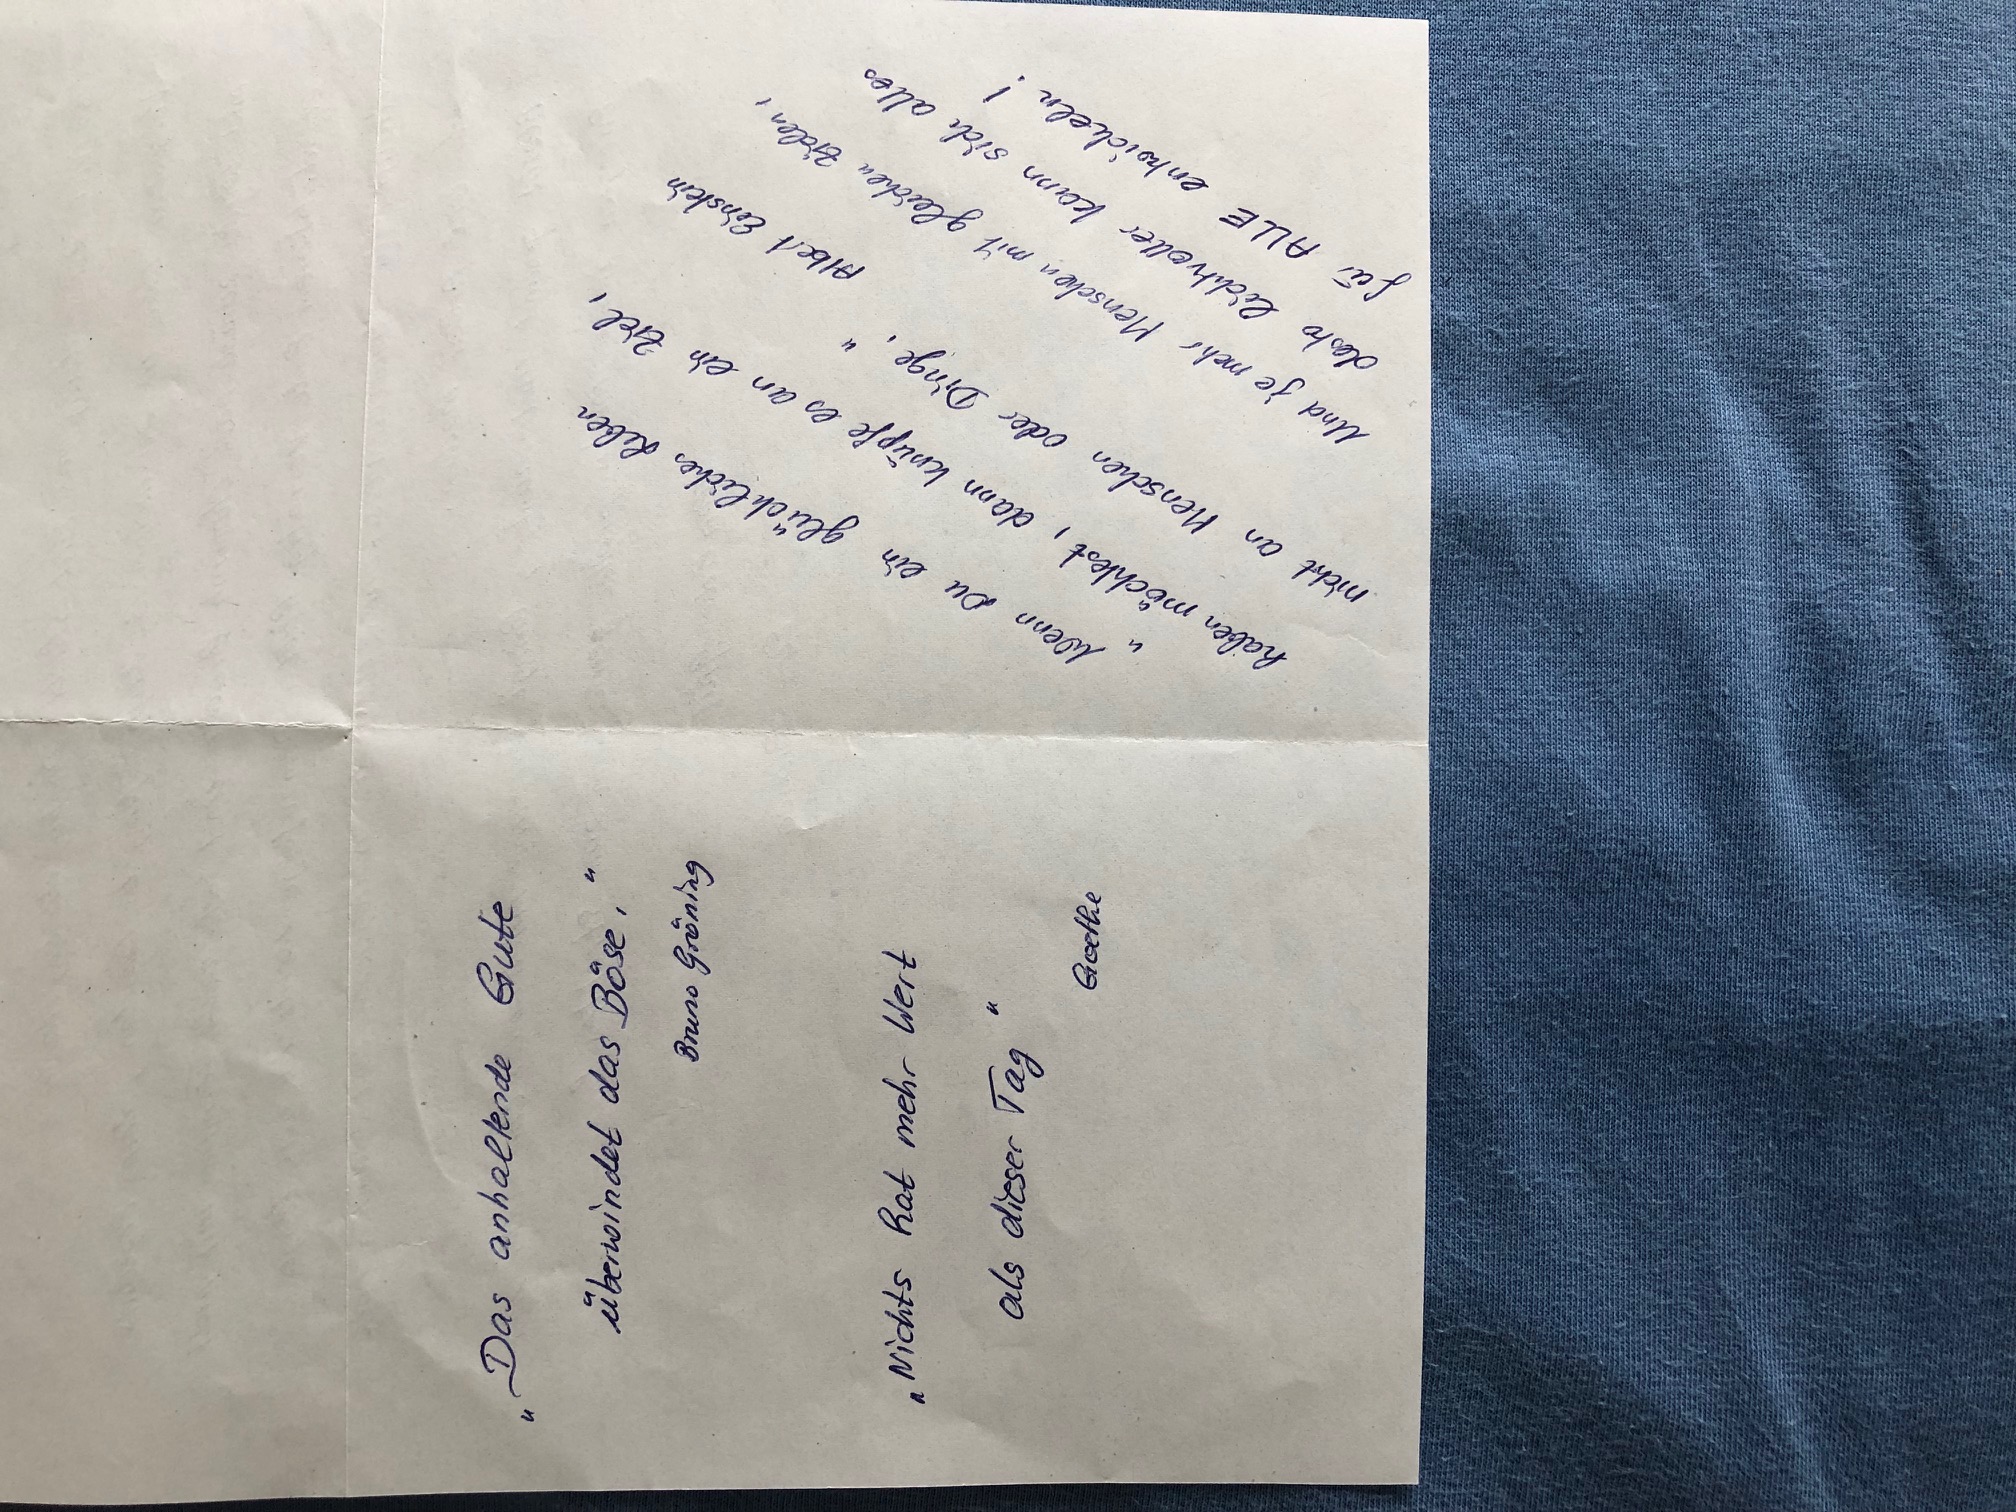 „Das anhaltende Gute
überwindet das Böse."
Bruno Gröning
„Nichts hat mehr Wert
als dieser Tag"
Goethe
„Wenn Du ein glückliches Leben
haben möchtest, dann knüpfe es an ein Ziel,
nicht an Menschen oder Dinge."
Albert Einstein
Und je mehr Menschen mit gleichen Zielen,
desto lichtvoller kann sich alles
für ALLE entwickeln!